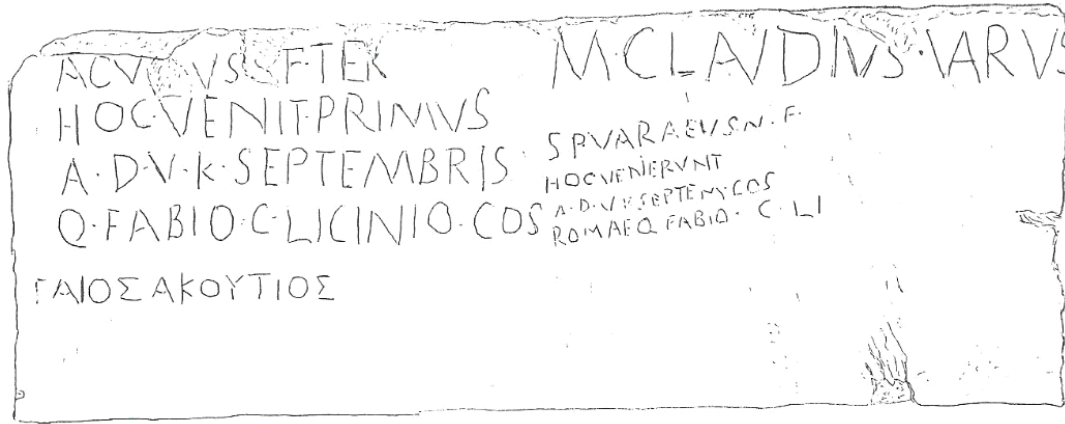 ACV VS F TER
HOC·VENIT·PRIMVS
A·D·V·K·SEPTEMBRIS·
Q·FABIO·C·LICINIO·COS
ΓΑΙΟΣ ΑΚΟΥΤΙΟΣ
M·CLAVDIVS·VARVS
SPVARAEVSN·F·
HOCVENIERVNT
A·D·V K SEPTEM·COS
ROMAEQ FABIO· C·LI